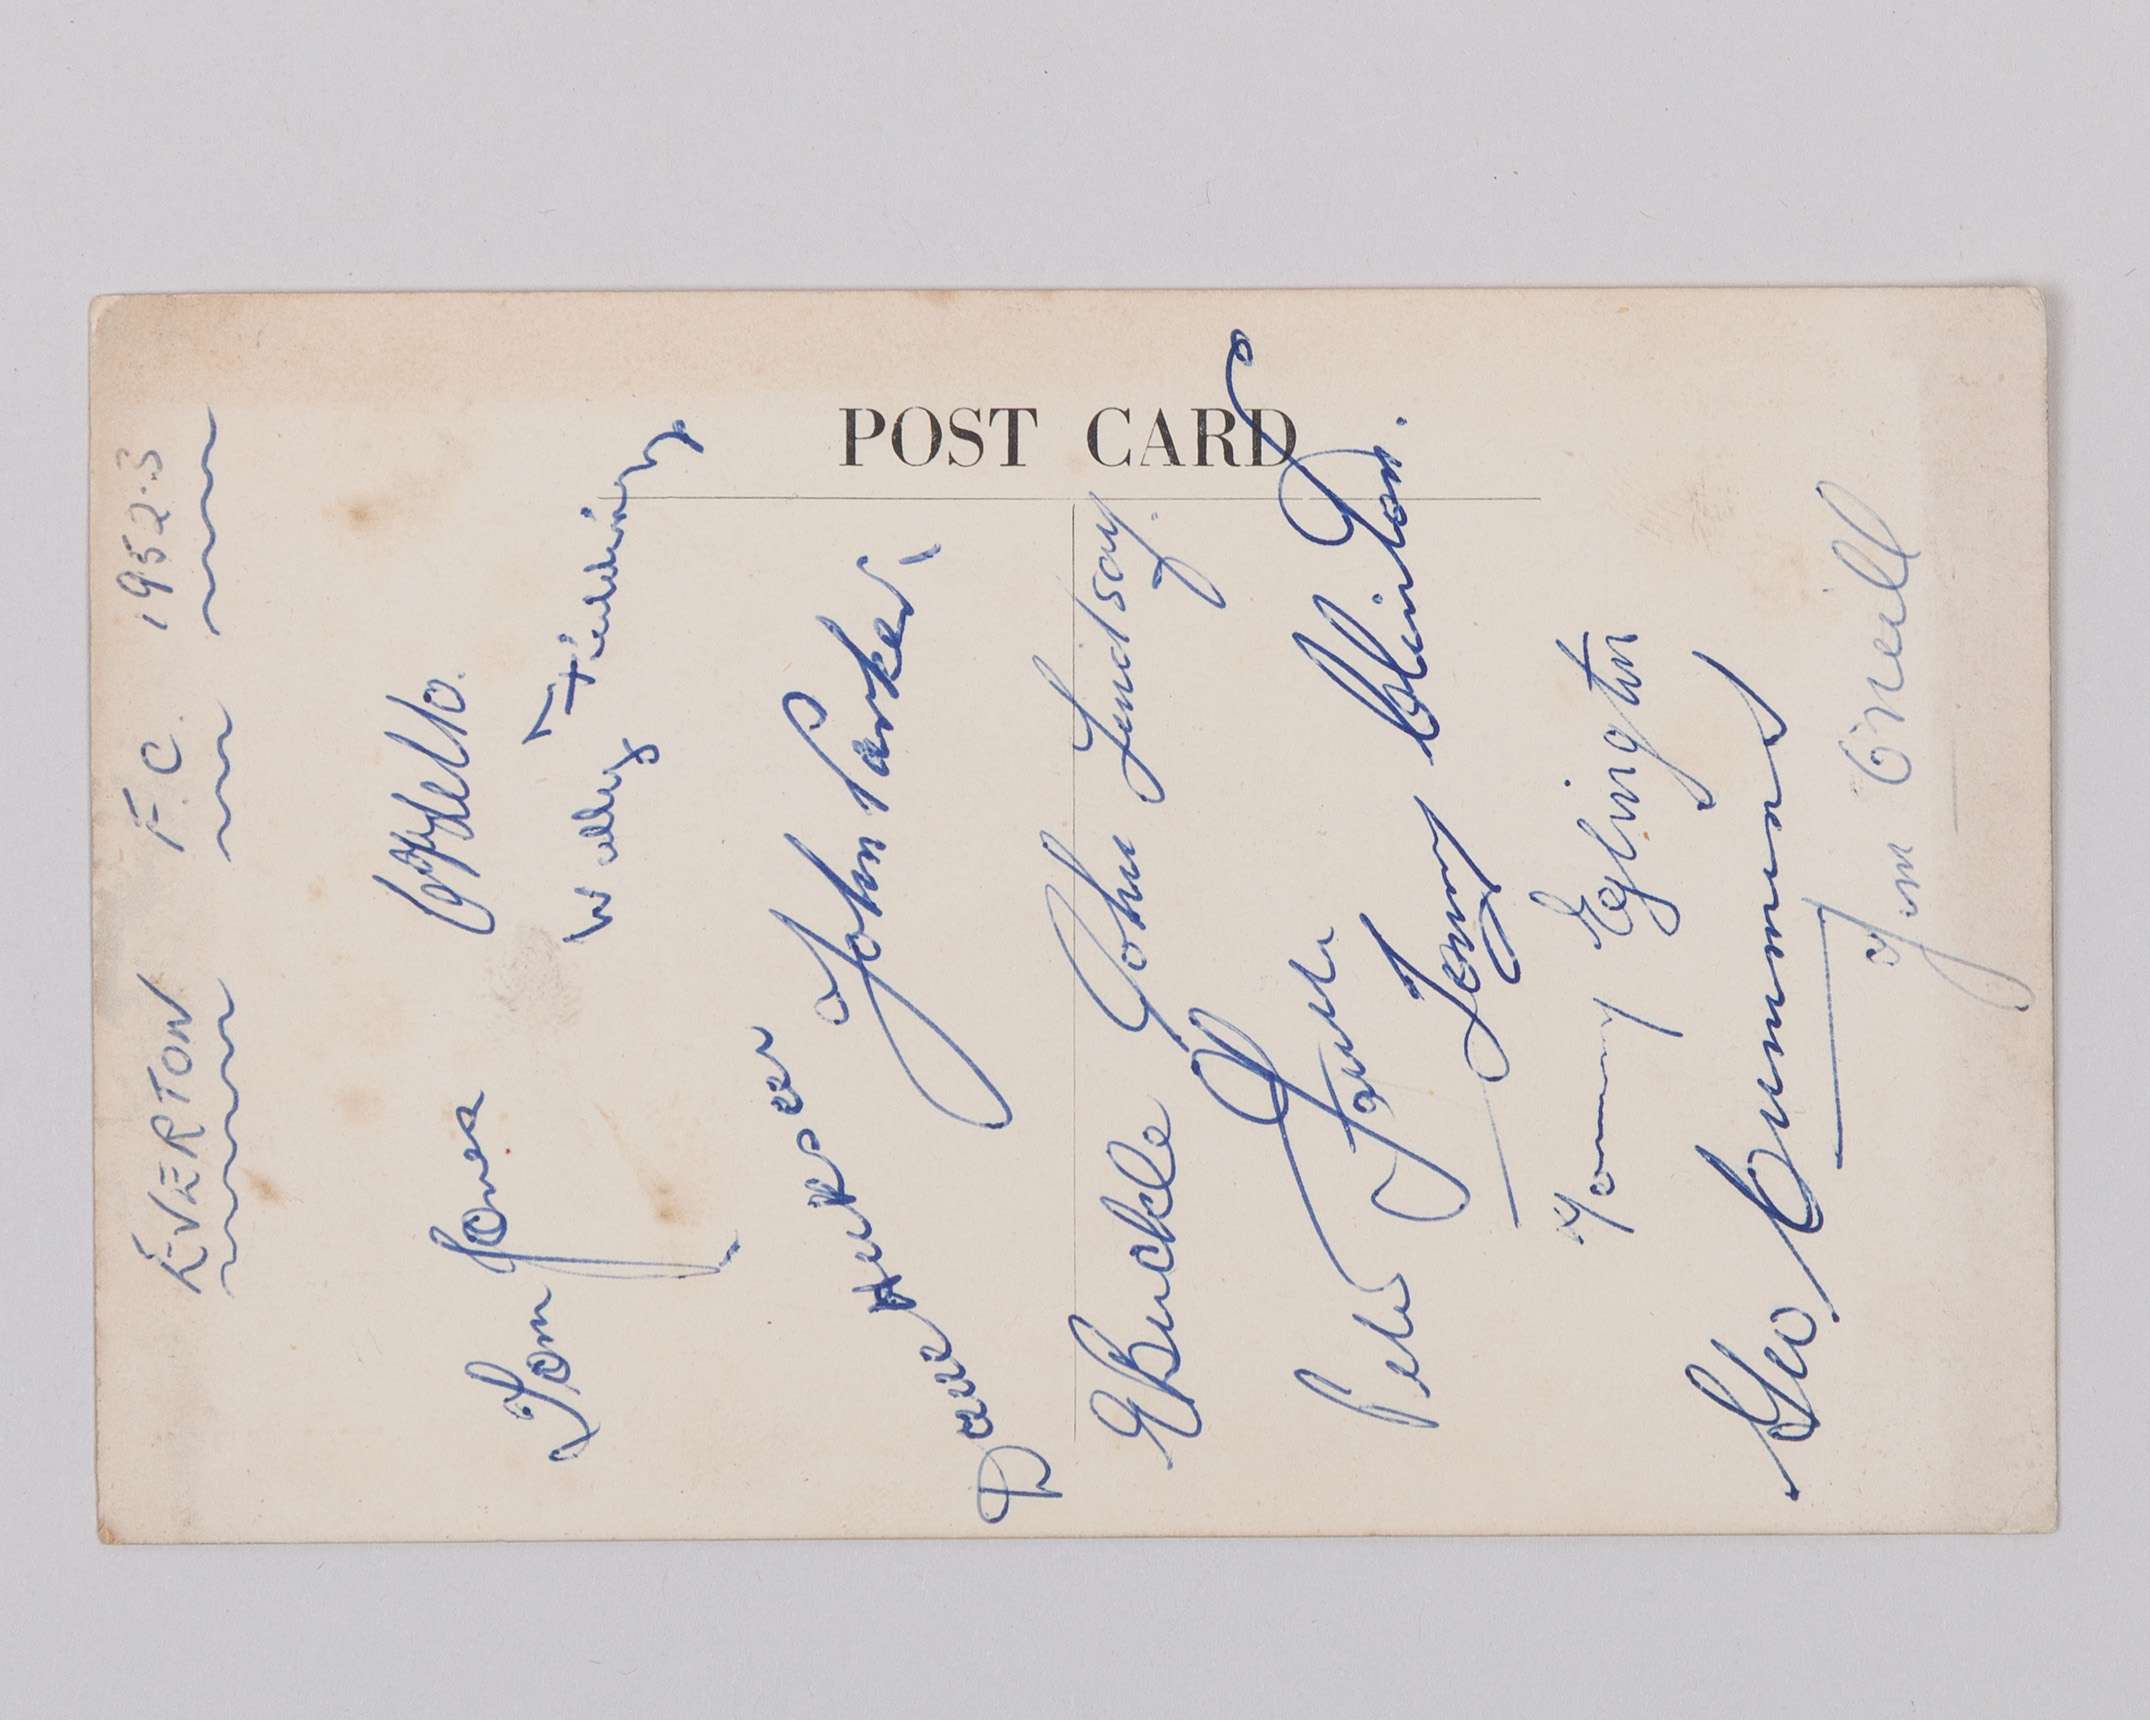 POST CARD
EVERTON F.C. 1952-3
Tom Jones
Wally Fielding
Dave Hickson
John Parker
E Buckle
John Lindsay.
Peter Farrell
Tommy Clinton.
Tommy Eglington
Geo Cummins
Jim O'Neill